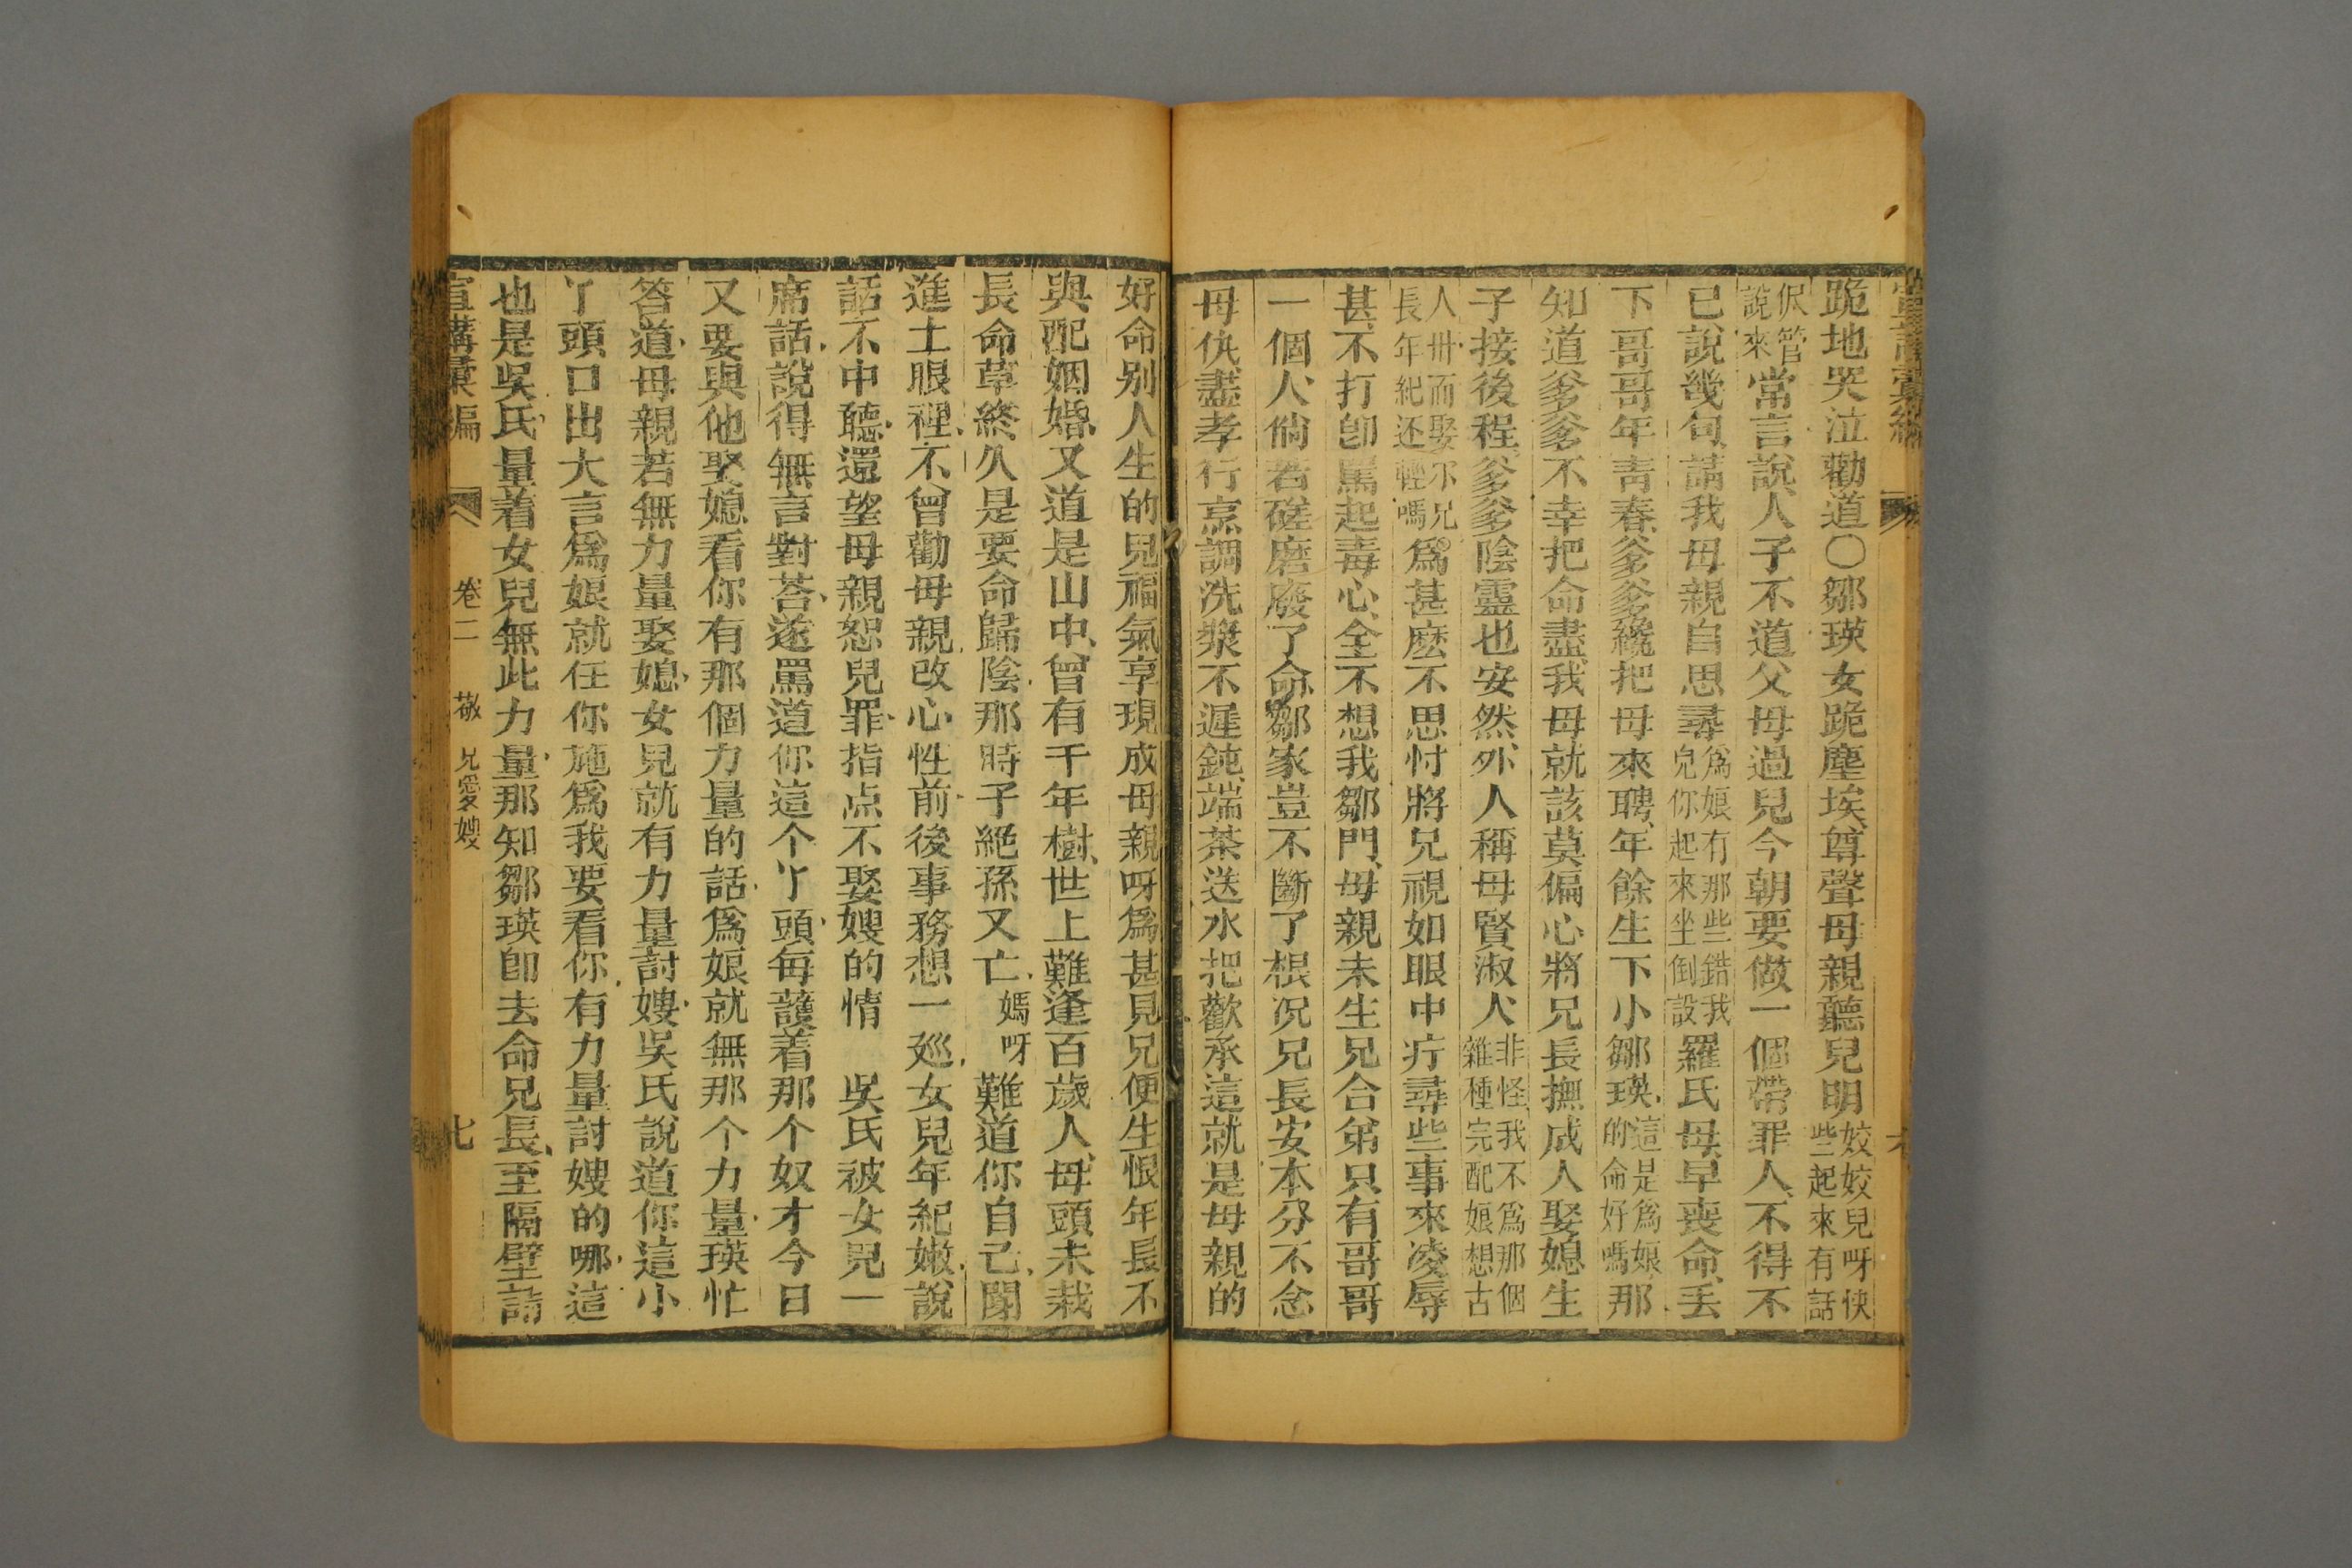 跪地哭泣勸道〇鄒瑛女跪塵埃、尊聲母親聽兒明姣姣兒呀快些起來有話
伬管說來常言說、人子不道父母過兒今朝要做一個帶罪人、不得不
已說幾句、請我母親自思尋為娘有那些錯我兒你起來坐倒設羅氏母、早喪命、丟
下哥哥年靑春、爹爹纔把母來聘、年餘生下小鄒瑛、這是為娘的命好嗎那
知道爹爹不幸把命盡、我母就該莫偏心將兄長撫成人娶媳生
子接後程、爹爹陰靈也安然外人稱母賢淑人非怪我不為那個雜種完配娘想古
人卅而娶尔兄長年紀还輕嗎為甚麽不思忖將兄視如眼中疔尋些事來凌辱
甚、不打卽罵起毒心、全不想我鄒門、母親未生兄合弟只有哥哥
一個人、倘若磋磨廢了命、鄒家豈不斷了根况兄長安本分不念
母仇、盡孝行烹調洗漿不遲鈍、端茶送水把歡承這就是母親的
好命别人生的兒福氣享現成母親呀為甚見兄便生恨年長不
與配姻婚、又道是山中、曾有千年樹、世上難逢百歲人、母頭未栽
長命草終久是要命歸陰、那時子絕孫又亡、媽呀難道你自己、閉
進土眼裡、不曾勸母親、改心性前後事務想一廵、女兒年紀嫩、說
話不中聽、還望母親恕兒罪、指点不娶嫂的情　吳氏被女兒一
席話、說得無言對荅、遂罵道你這个丫頭、每護着那个奴才今日
又要與他娶媳看你有那個力量的話、為娘就無那个力量、瑛忙
答道、母親若無力量娶媳、女兒就有力量討嫂、吳氏說道你這小
丫頭口出大言為娘就任你施為我要看你、有力量討嫂的哪、這
也是吳氏、量着女兒無此力量、那知鄒瑛卽去命兄長、至隔壁請
宣講彙編　卷二　敬兄愛嫂　七